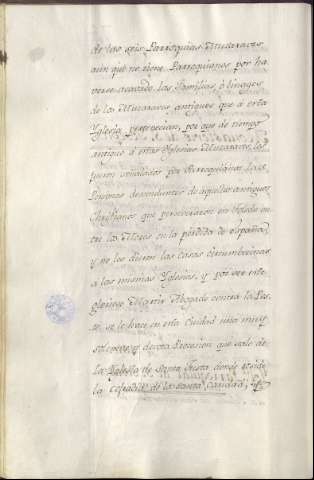 de las seis Parroquias Muzaraves,
aun que no tiene Parroquianos por ha
verse acavado las familias, ó linages
de los Muzaraves antiguos que a esta
Yglesia pertenecian, por que de tiempo
antiguo a estas Yglesias Muzaraves les
fueron señalados por Parroquianos las
Personas descendientes de aquellos antiguos
Christianos que permanecieron en Toledo en
tre los Moros en la pérdida de España,
y no les dieron las casas circumbecinas
a las mismas Yglesias, y por ser este
glorioso Martir Abogado contra la Pes
te, se le hace en esta Ciudad una muy
solemne, y devota Procesion que sale de
la Yglesia de Santa Justa donde reside
la cofradia de la Santa Caridad, que